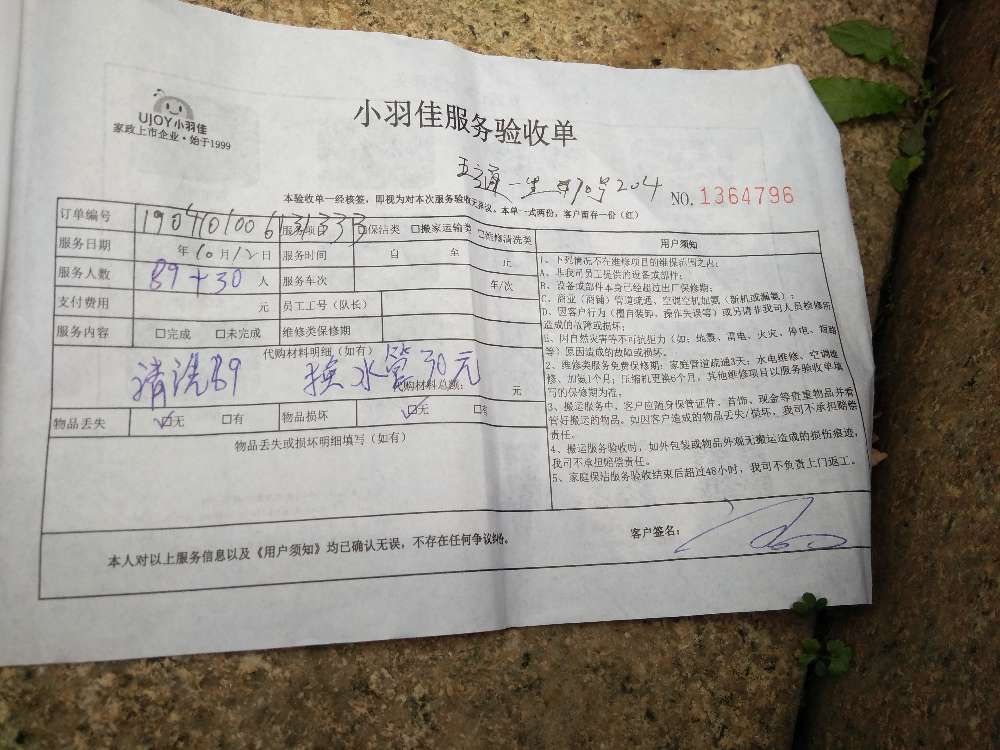 UJOY小羽佳
家政上市企业·始于1999
小羽佳服务验收单
一生 70号204
NO. 1364796
本验收单一经核签，即视为对本次服务验收无异议，本单一式两份，客户留存一份（红）
订单编号 服务项目 □保洁类 □搬家运输类 □维修清洗类
服务日期 年10月12日 服务时间 自 至 止
服务人数 89+30 人 服务车次 车/次
支付费用 元 员工工号（队长）
服务内容 □完成 □未完成 维修类保修期
代购材料明细（如有）
清洗89 换水管30元
代购材料总额： 元
物品丢失 ☑无 □有 物品损坏 ☑无 □有
物品丢失或损坏明细填写（如有）
用户须知
1、下列情况不在维修项目的维保范围之内：
A、非我司员工提供的设备或部件；
B、设备或部件本身已经超过出厂保修期；
C、商业（商铺）管道疏通、空调空机加氟（新机或漏氟）；
D、因客户行为（擅自装卸、操作失误等）或另请非我司人员检修所
造成的故障或损坏；
E、因自然灾害等不可抗拒力（如：地震、雷电、火灾、停电、短路
等）原因造成的故障或损坏。
2、维修类服务免费保修期：家庭管道疏通3天；水电维修、空调维
修、加氟1个月；压缩机更换6个月，其他维修项目以服务验收单填
写的保修期为准。
3、搬运服务中，客户应随身保管证件、首饰、现金等贵重物品并看
管好搬运的物品。如因客户造成的物品丢失/损坏，我司不承担赔偿
责任。
4、搬运服务验收时，如外包装或物品外观无搬运造成的损伤痕迹，
我司不承担赔偿责任。
5、家庭保洁服务验收结束后超过48小时，我司不负责上门返工。
本人对以上服务信息以及《用户须知》均已确认无误，不存在任何争议纠纷。
客户签名：